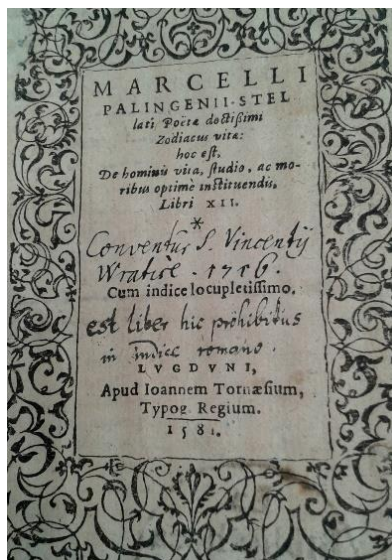 MARCELLI
PALINGENII·STEL
lati Poetæ doctißimi
Zodiacus vitæ:
hoc est,
De hominis vita, studio, ac mo-
ribus optimè instituendis,
Libri XII.
*
Conventus S. Vincentij
Wratisl. 1716.
Cum indice locupletissimo.
est liber hic prohibitus
in indice romano.
LVGDVNI,
Apud Ioannem Tornæsium,
Typog. Regium.
1581.